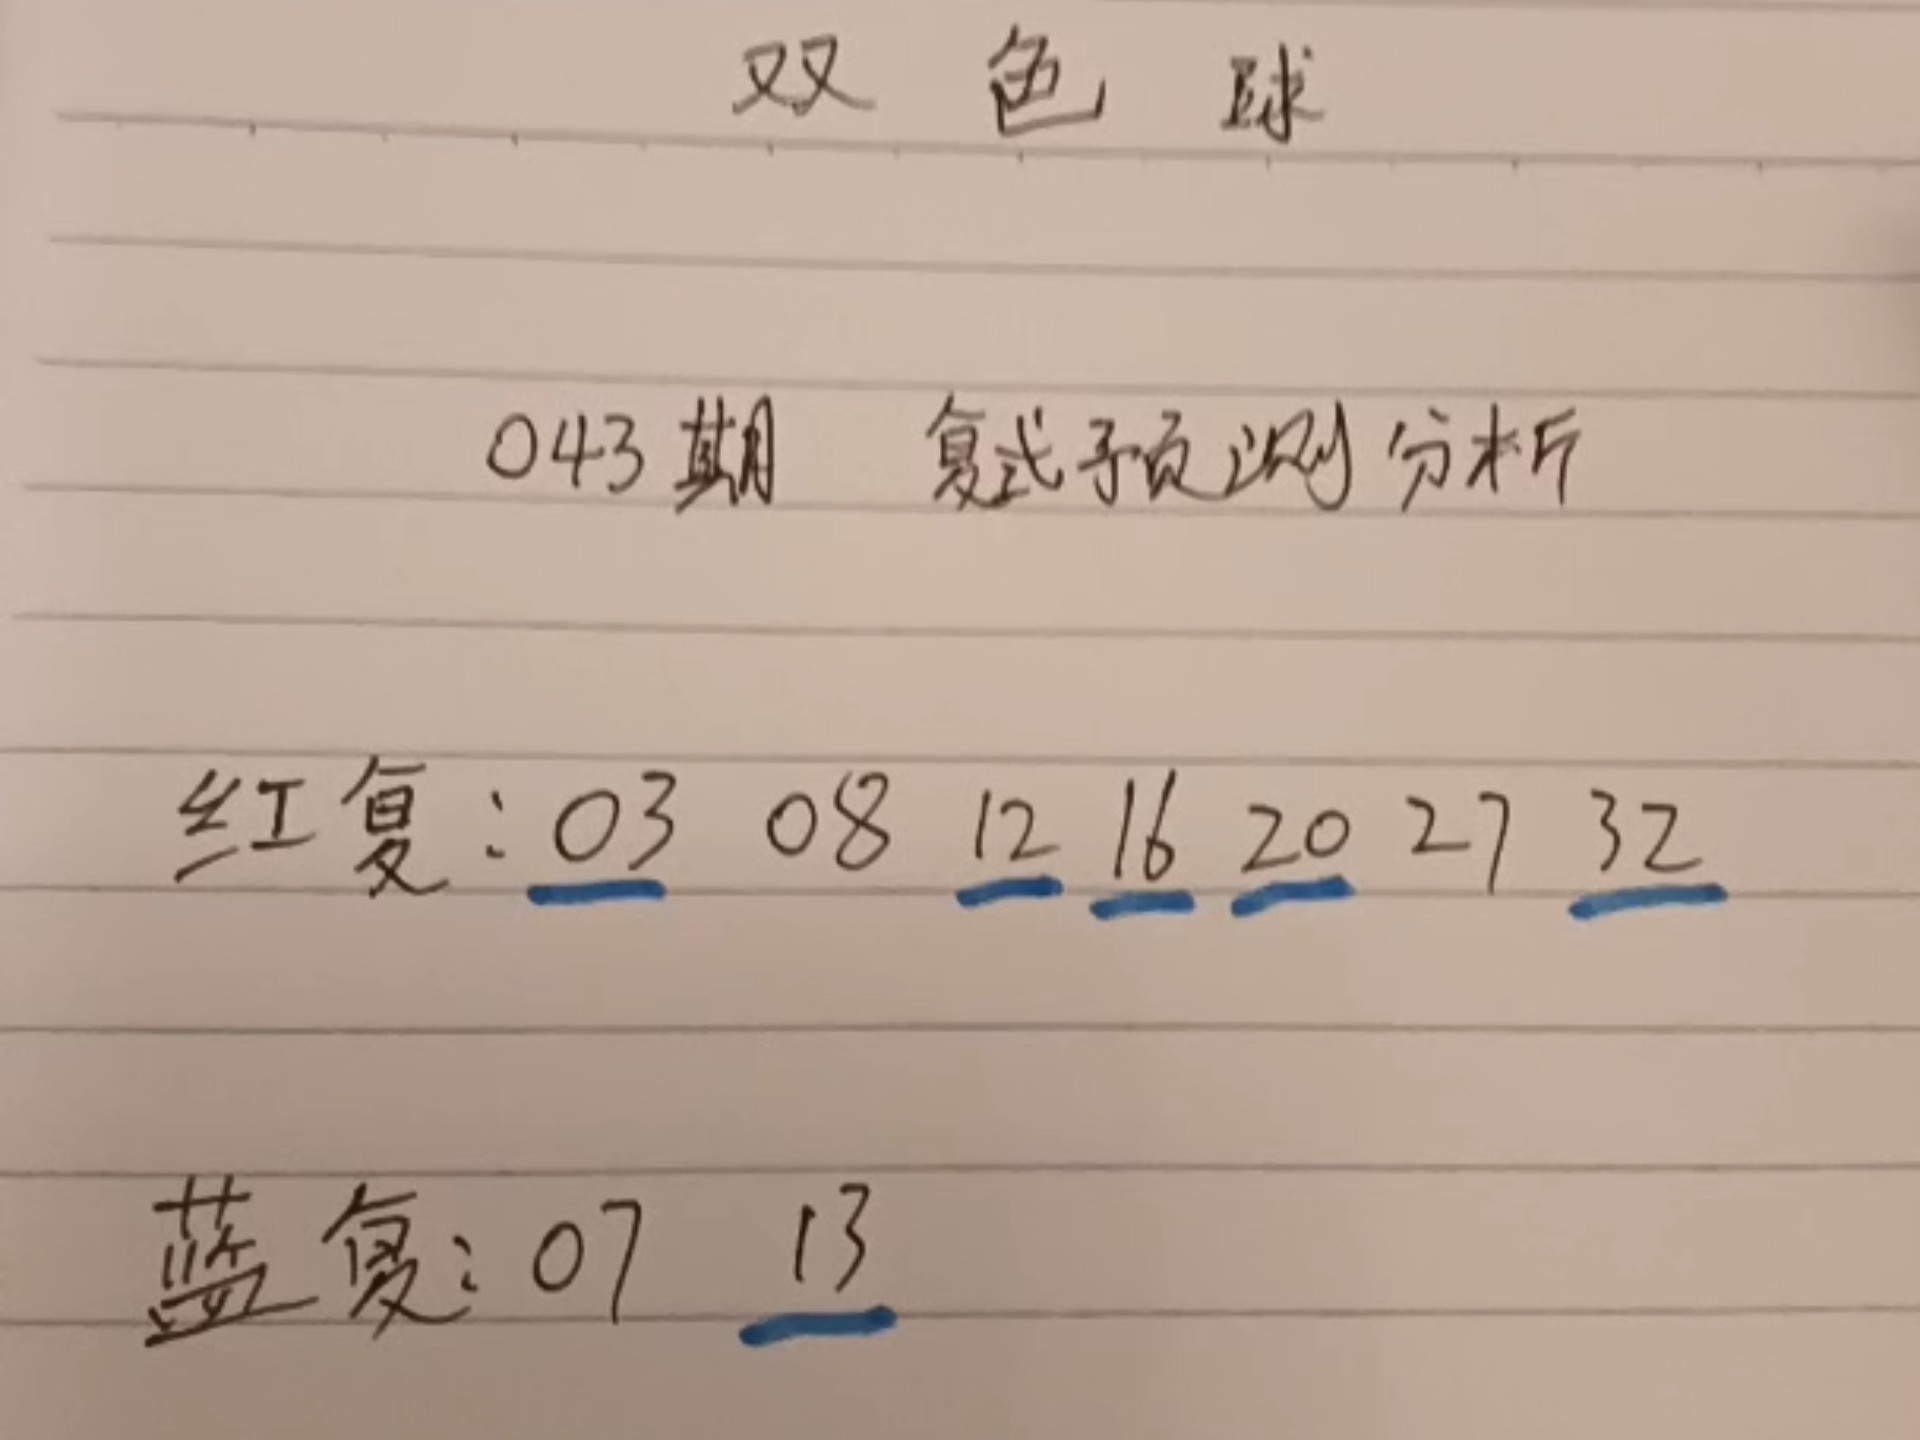 双色球
043期 复式预测分析
红复：03 08 12 16 20 27 32
蓝复：07 13